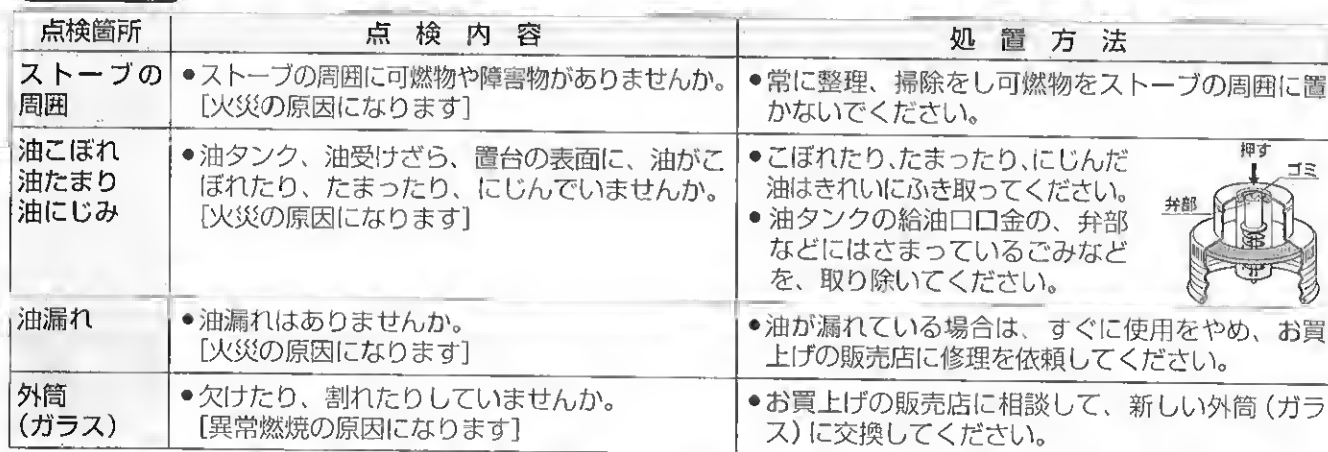 点検箇所
点検内容
処置方法
ストーブの
周囲
●ストーブの周囲に可燃物や障害物がありませんか。
[火災の原因になります]
●常に整理、掃除をし可燃物をストーブの周囲に置
かないでください。
油こぼれ
油たまり
油にじみ
●油タンク、油受けざら、置台の表面に、油がこ
ぼれたり、たまったり、にじんでいませんか。
[火災の原因になります]
●こぼれたり、たまったり、にじんだ
油はきれいにふき取ってください。
●油タンクの給油口口金の、弁部
などにはさまっているごみなど
を、取り除いてください。
押す
ゴミ
弁部
油漏れ
●油漏れはありませんか。
[火災の原因になります]
●油が漏れている場合は、すぐに使用をやめ、お買
上げの販売店に修理を依頼してください。
外筒
(ガラス)
●欠けたり、割れたりしていませんか。
[異常燃焼の原因になります]
●お買上げの販売店に相談して、新しい外筒(ガラ
ス)に交換してください。